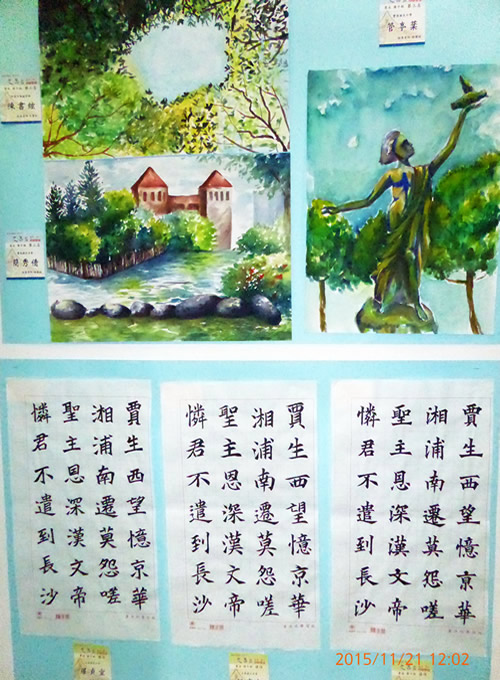 賈生西望憶京華
湘浦南遷莫怨嗟
聖主恩深漢文帝
憐君不遣到長沙
賈生西望憶京華
湘浦南遷莫怨嗟
聖主恩深漢文帝
憐君不遣到長沙
賈生西望憶京華
湘浦南遷莫怨嗟
聖主恩深漢文帝
憐君不遣到長沙
2015/11/21 12:02